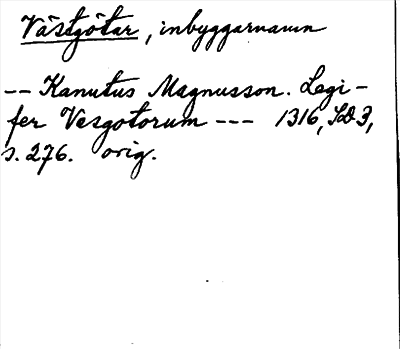 Västgötar, inbyggarnamn
-- Kanutus Magnusson. Legi-
fer Vesgotorum --- 1316, SD 3,
s. 276. orig.